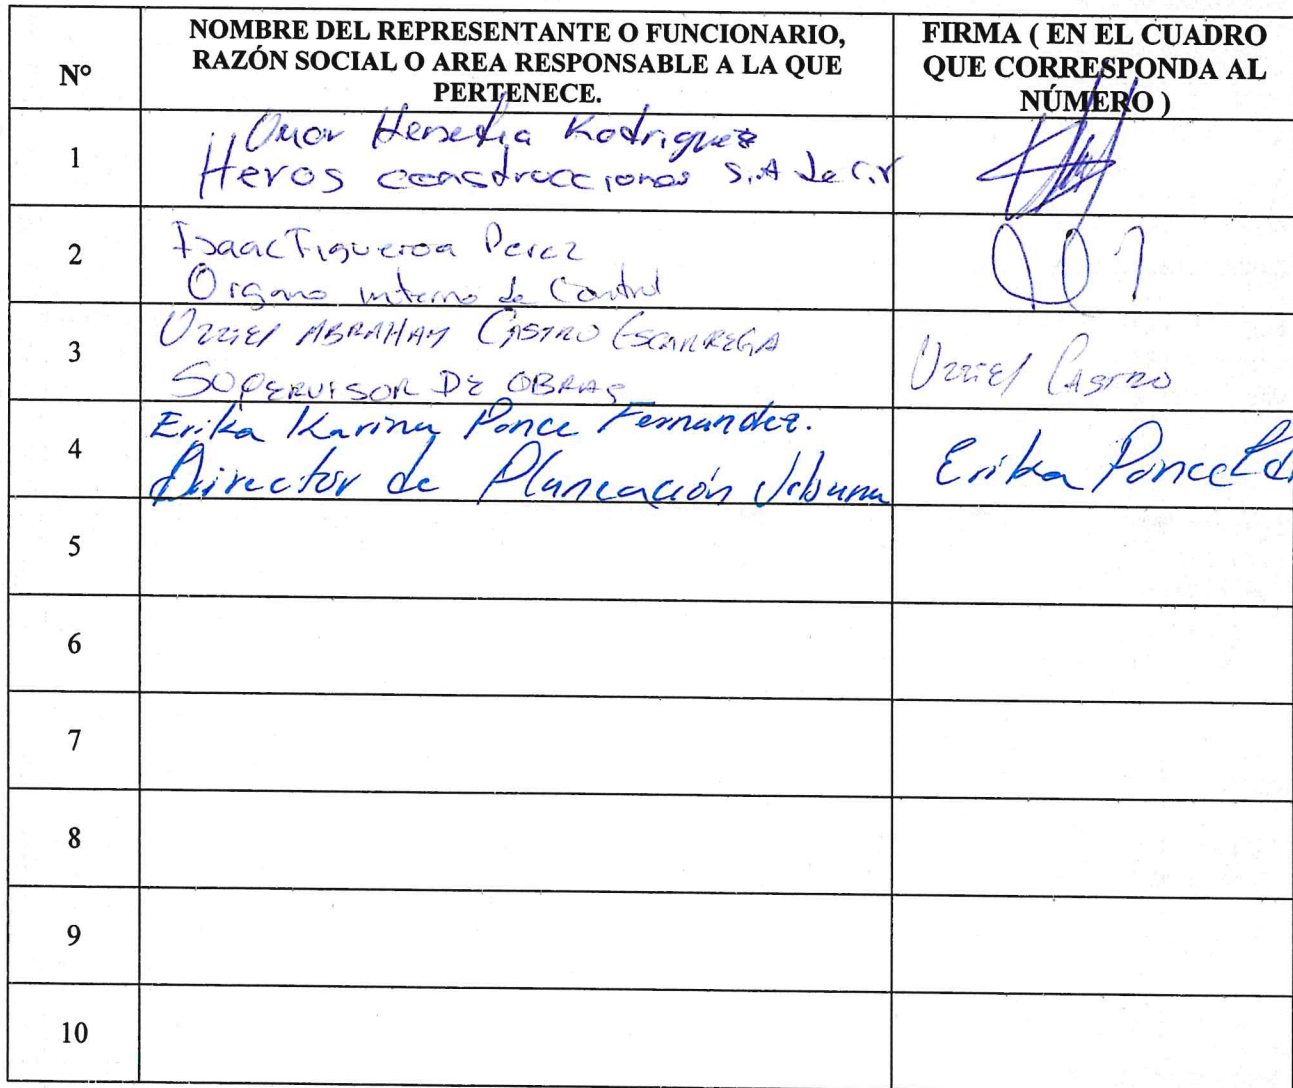 N°
NOMBRE DEL REPRESENTANTE O FUNCIONARIO,
RAZÓN SOCIAL O AREA RESPONSABLE A LA QUE
PERTENECE.
FIRMA ( EN EL CUADRO
QUE CORRESPONDA AL
NÚMERO )
1
Omar Heredia Rodriguez
Heros construcciones S.A de C.V
2
Isaac Figueroa Perez
Organo interno de Control
3
Uzziel ABRAHAM CASTRO ESCARREGA
SUPERVISOR DE OBRAS
Uzziel CASTRO
4
Erika Karina Ponce Fernandez.
Director de Planeación Urbana
Erika Ponce
5
6
7
8
9
10